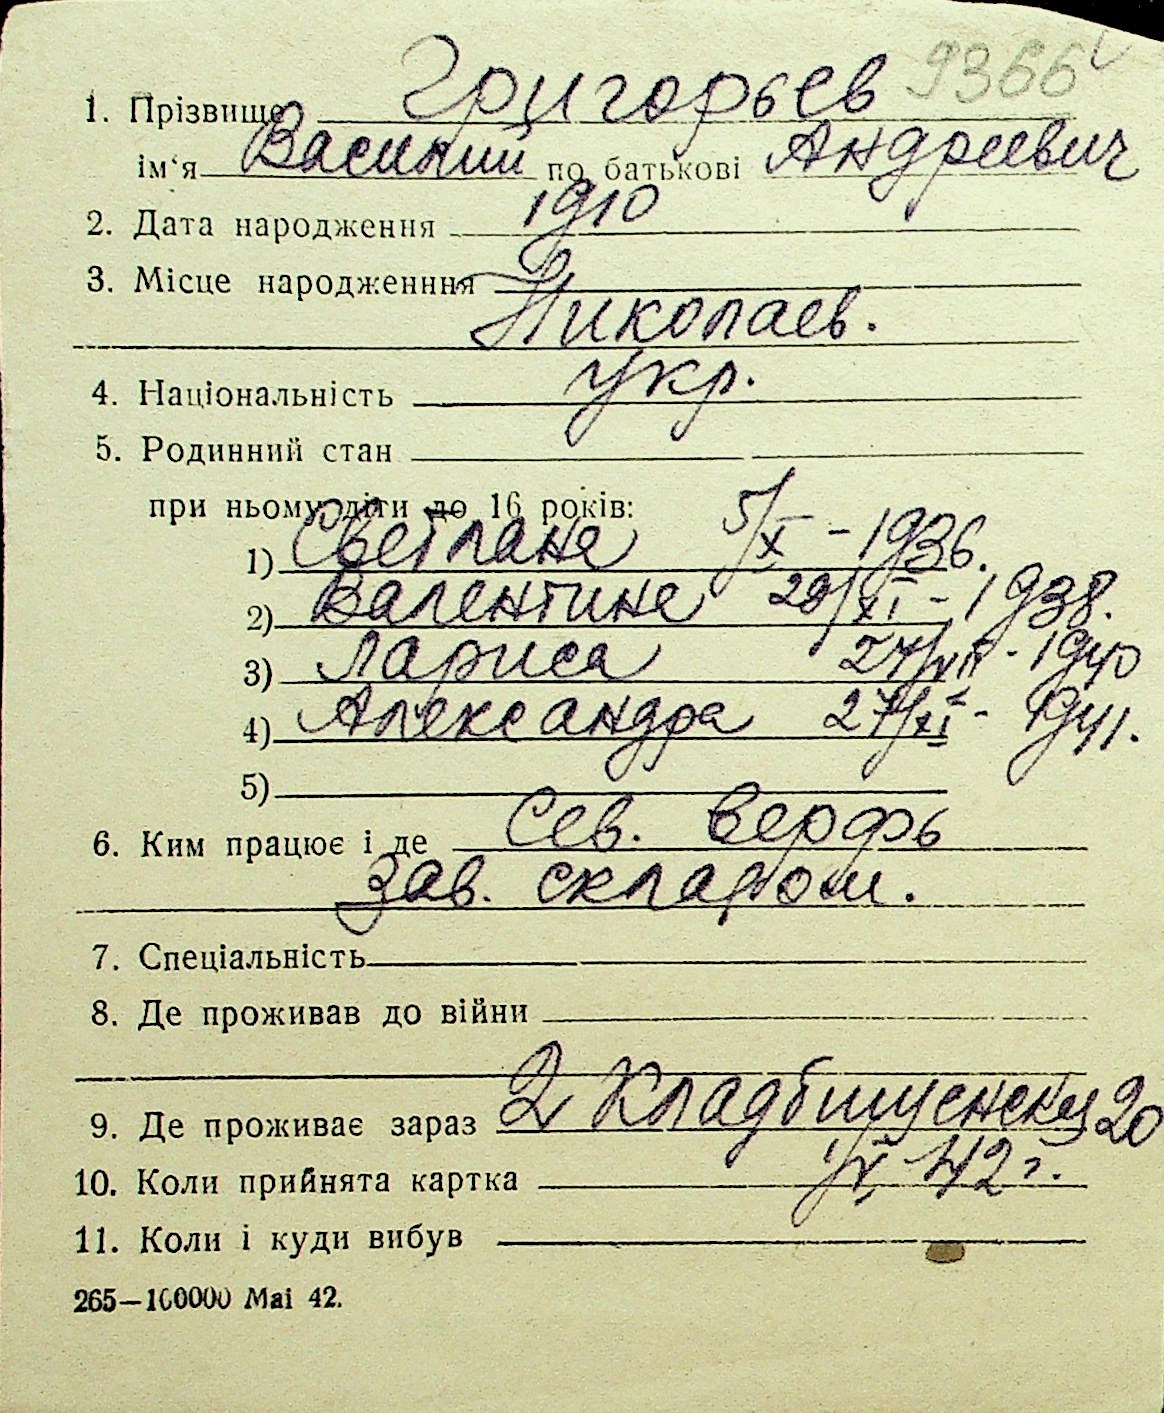 9366
1. Прізвище Григорьев
ім'я Василий по батькові Андреевич
2. Дата народження 1910
3. Місце народженння
Николаев.
4. Національність укр.
5. Родинний стан
при ньому діти до 16 років:
1) Светлане 5/X - 1936.
2) Валентине 29/XI - 1938.
3) Лариса 27/VII - 1940
4) Александра 27/XI - 1941.
5)
6. Ким працює і де Сев. верфь
Зав. складом.
7. Спеціальність
8. Де проживав до війни
9. Де проживає зараз 2 Кладбищенску 20
10. Коли прийнята картка 42 г.
11. Коли і куди вибув
265—100000 Mai 42.